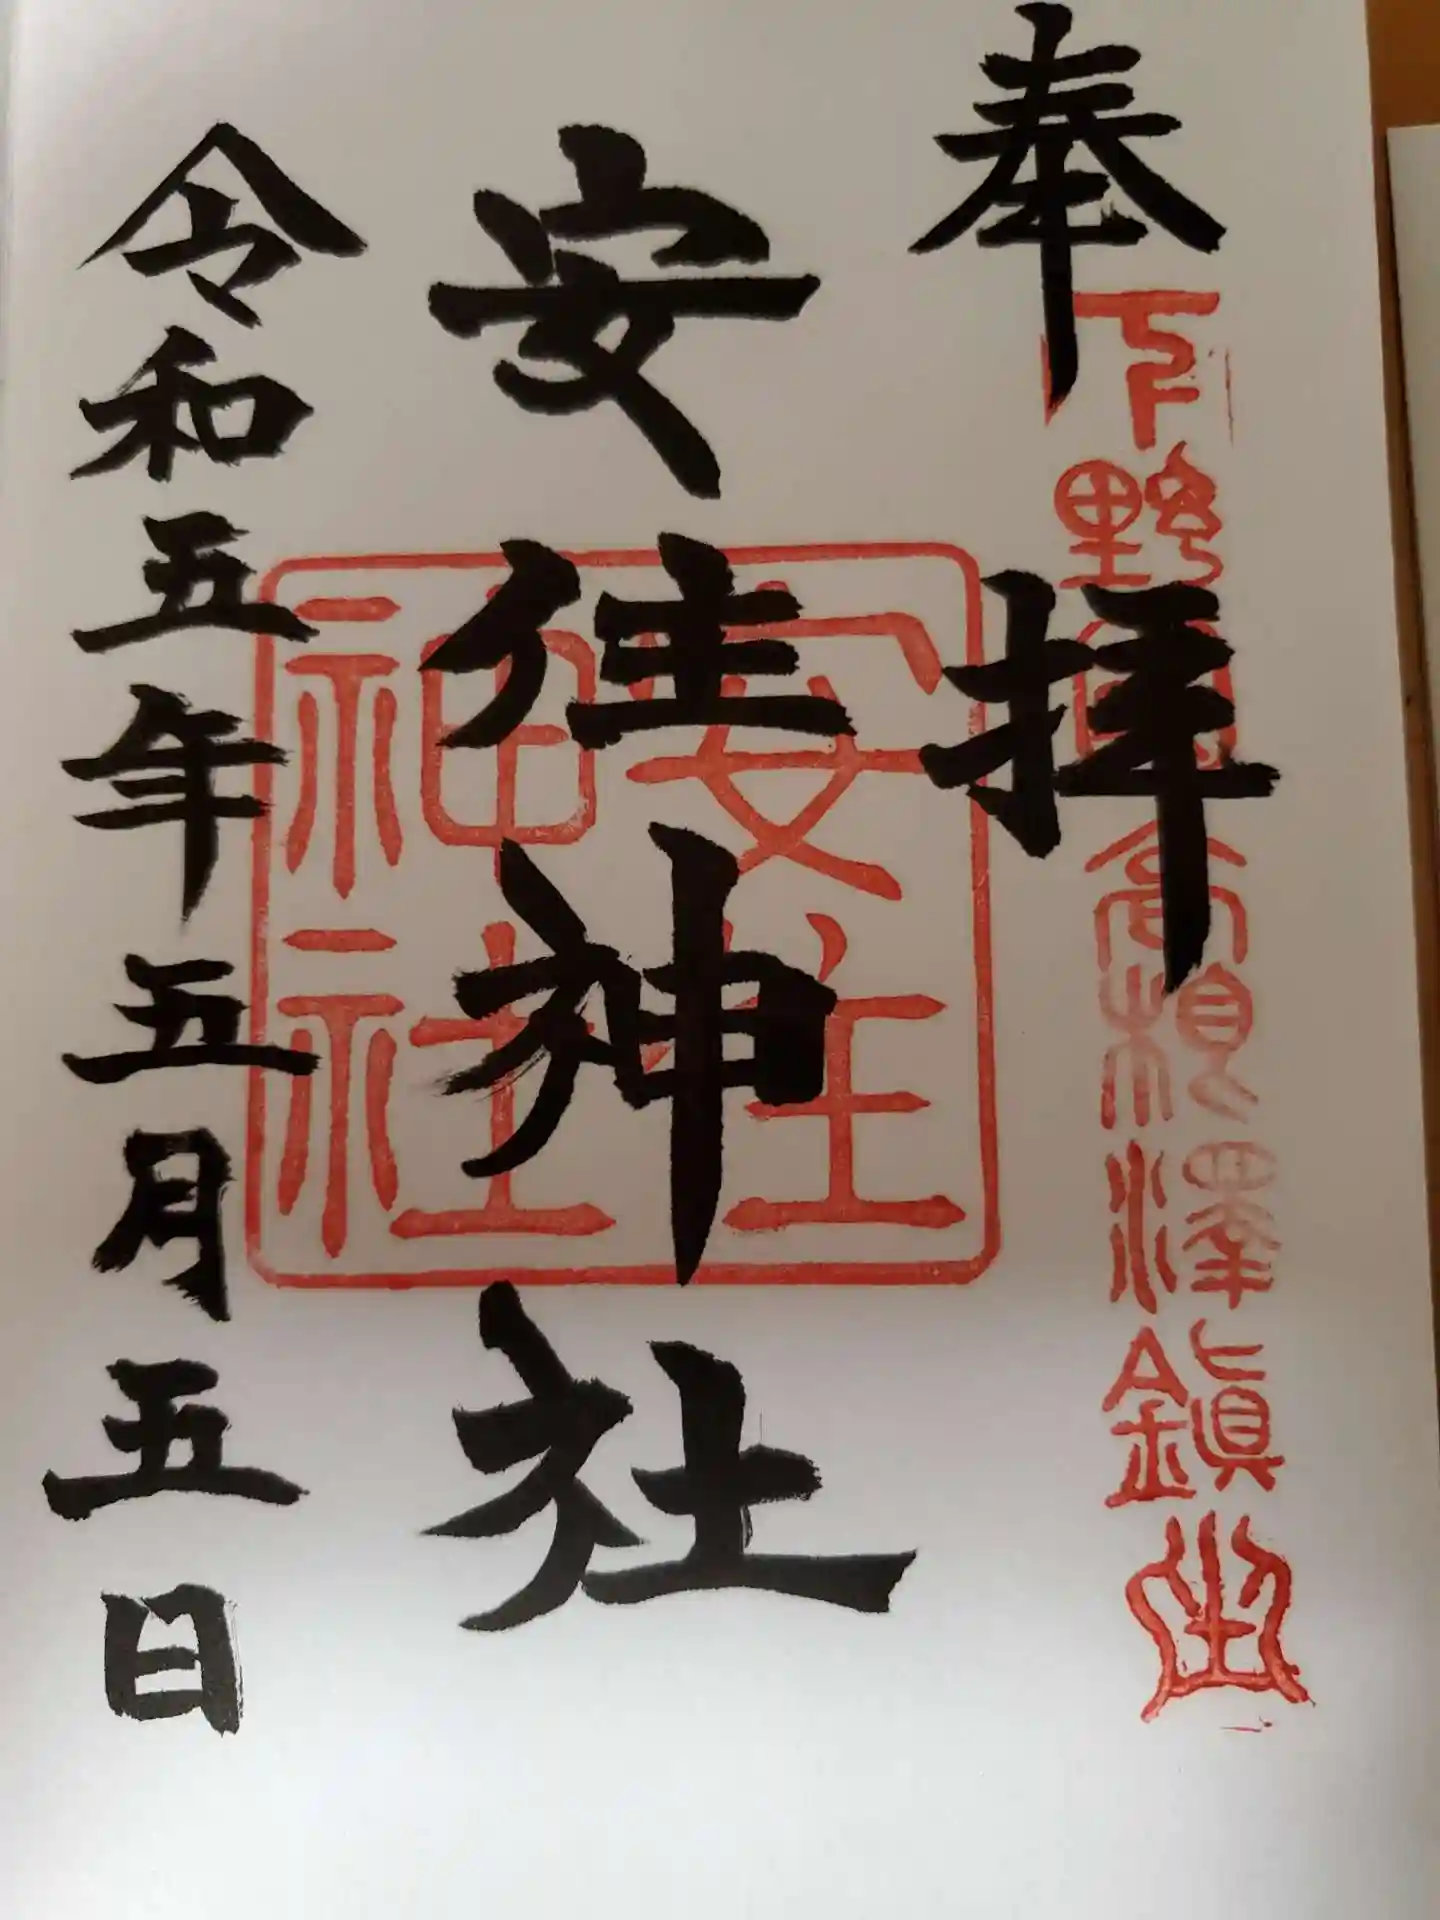 奉拝
下野國高根澤鎮坐
安住神社
安住神社
令和五年五月五日